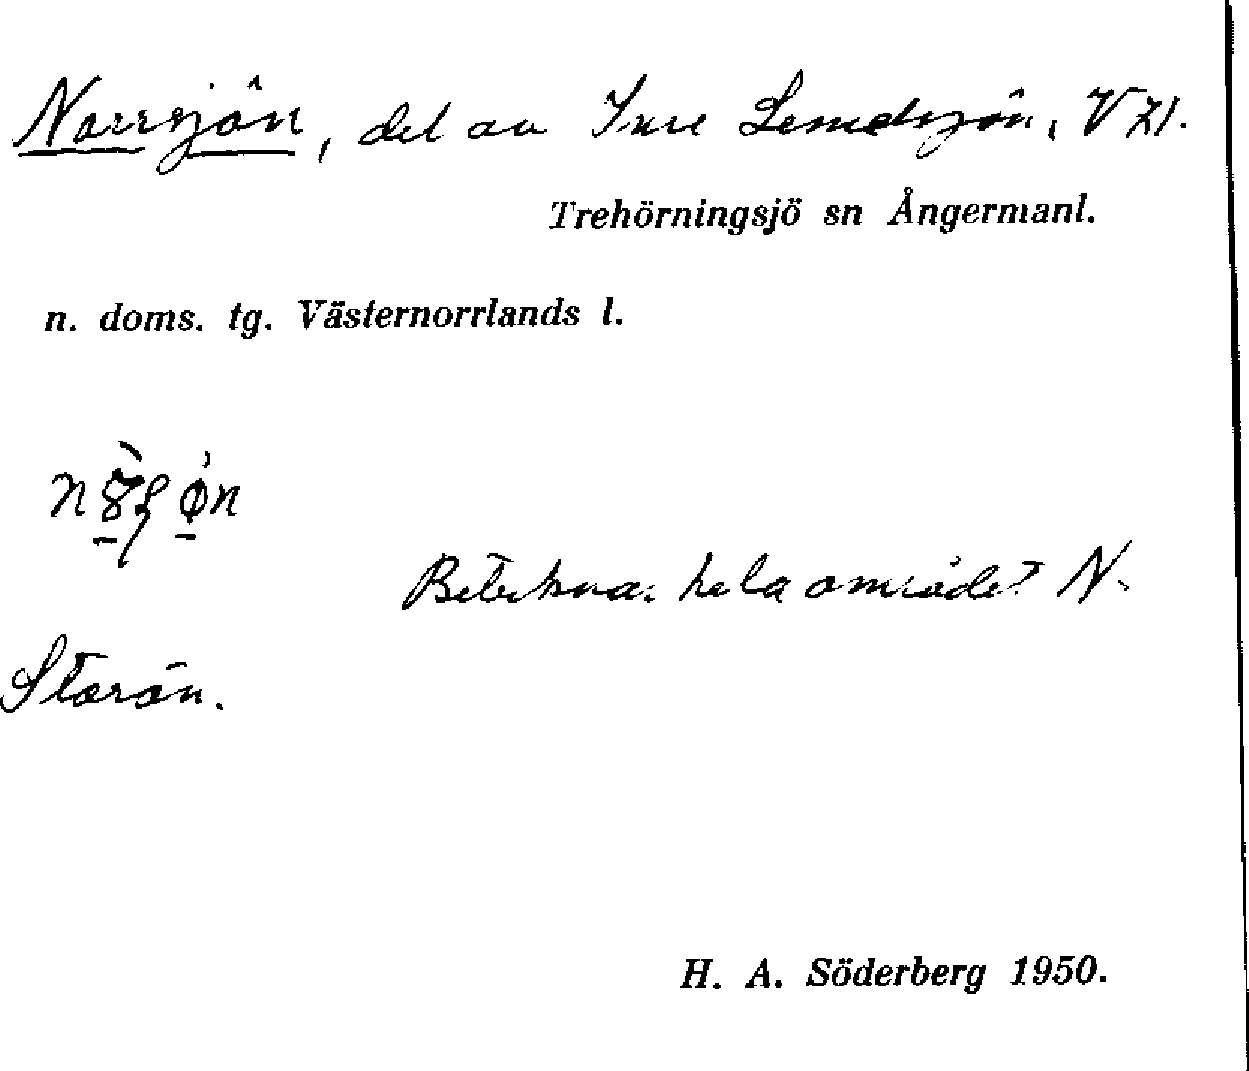 Norrsjön, del av Inre Lemdsjön, VZ1.
Trehörningsjö sn Ångermanl.
n. doms. tg. Västernorrlands l.
Betecknar hela området N.
Storön.
H. A. Söderberg 1950.